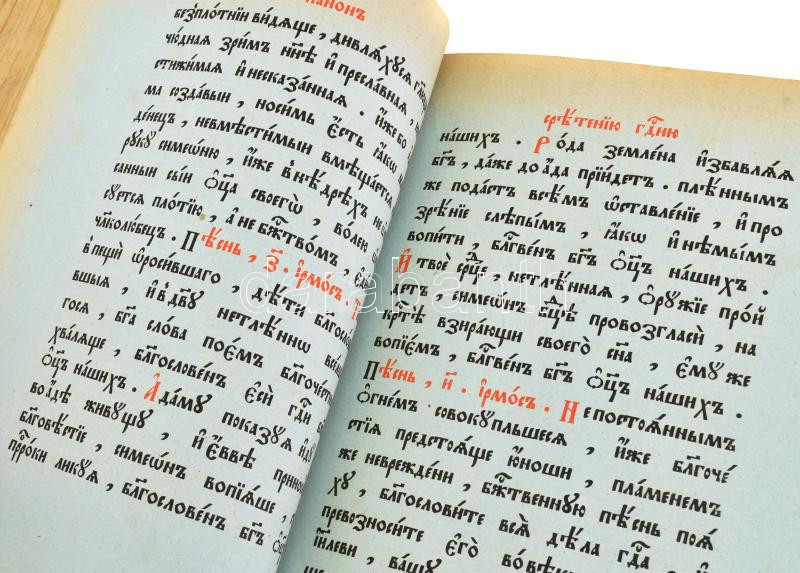 канонъ
безплотнїи видѧще , дивлѧхусѧ гл҃
чюднаѧ зримъ нн҃ѣ и҆ преславнаѧ ,
стижимаѧ и҆ несказаннаѧ . и҆же бо
ма создавыи , носимь є҆сть ꙗ҆ко м
денецъ , невмѣстимыи вмѣщаетсѧ
руку симеѡню , и҆же в нѣдрѣхъ не
санныи сы́и о҆ц҃а своегѡ̀ , волею
суетсѧ плотїю , а҆ не бж҃твомъ , є҆
чл҃колюбецъ . Пѣснь , з҃ . і҆рмосъ .
в пещи ѡ҆росившаго , дѣти благосло
выѧ , и҆ в дв҃у нетлѣннѡ всел
госѧ , бг҃а слова поемъ благочест
хвалѧще , бл҃гословенъ є҆си̂ гд҃и б
о҆ц҃ъ нашихъ . А҆даму показуѧ и҆д
во а҆дѣ живущу , и҆ є҆ввѣ принос
бл҃говѣстїе , симеѡнъ вопїѧше ,
прⷪ҇роки ликуѧ , бл҃гословенъ бг҃ъ о҆ц҃
срѣ́тенїю гд҇ню
нашихъ . Рода землена и҆збавлѧѧ
бг҃ъ , даже до а҆да прїи́детъ . плѣ́ннымъ
же подастъ всѣмъ ѡ҆ставленїе , и҆ про
зрѣ́нїе слѣпымъ , ꙗ҆ко и҆ нѣмымъ
вопити , бл҃гвенъ бг҃ъ о҆ц҃ъ нашихъ .
И҆ твоѐ срⷣце , нетлѣннаѧ , о҆ружїе про́й
детъ , симеѡнъ бц҃ѣ провозгласѝ , на
кртⷭ҇ѣ взирающи своего̀ сн҃а , є҆муже
вопїемъ , бл҃гвенъ бг҃ъ о҆ц҃ъ нашихъ .
Пѣснь , и҃ . і҆рмосъ . Непостоѧ́ннымъ
о҆гнемъ совокупльшесѧ , и҆же бл҃гоче́
стїѧ предстоѧще ю҆ноши , пламенемъ
же невреждени , бж҃твенную пѣ́снь поѧ́
ху , бл҃гословите всѧ̀ дѣ́ла гд҇а , и҆
превозносите є҆го̀ во вѣ
і҆и҃леви , вашу